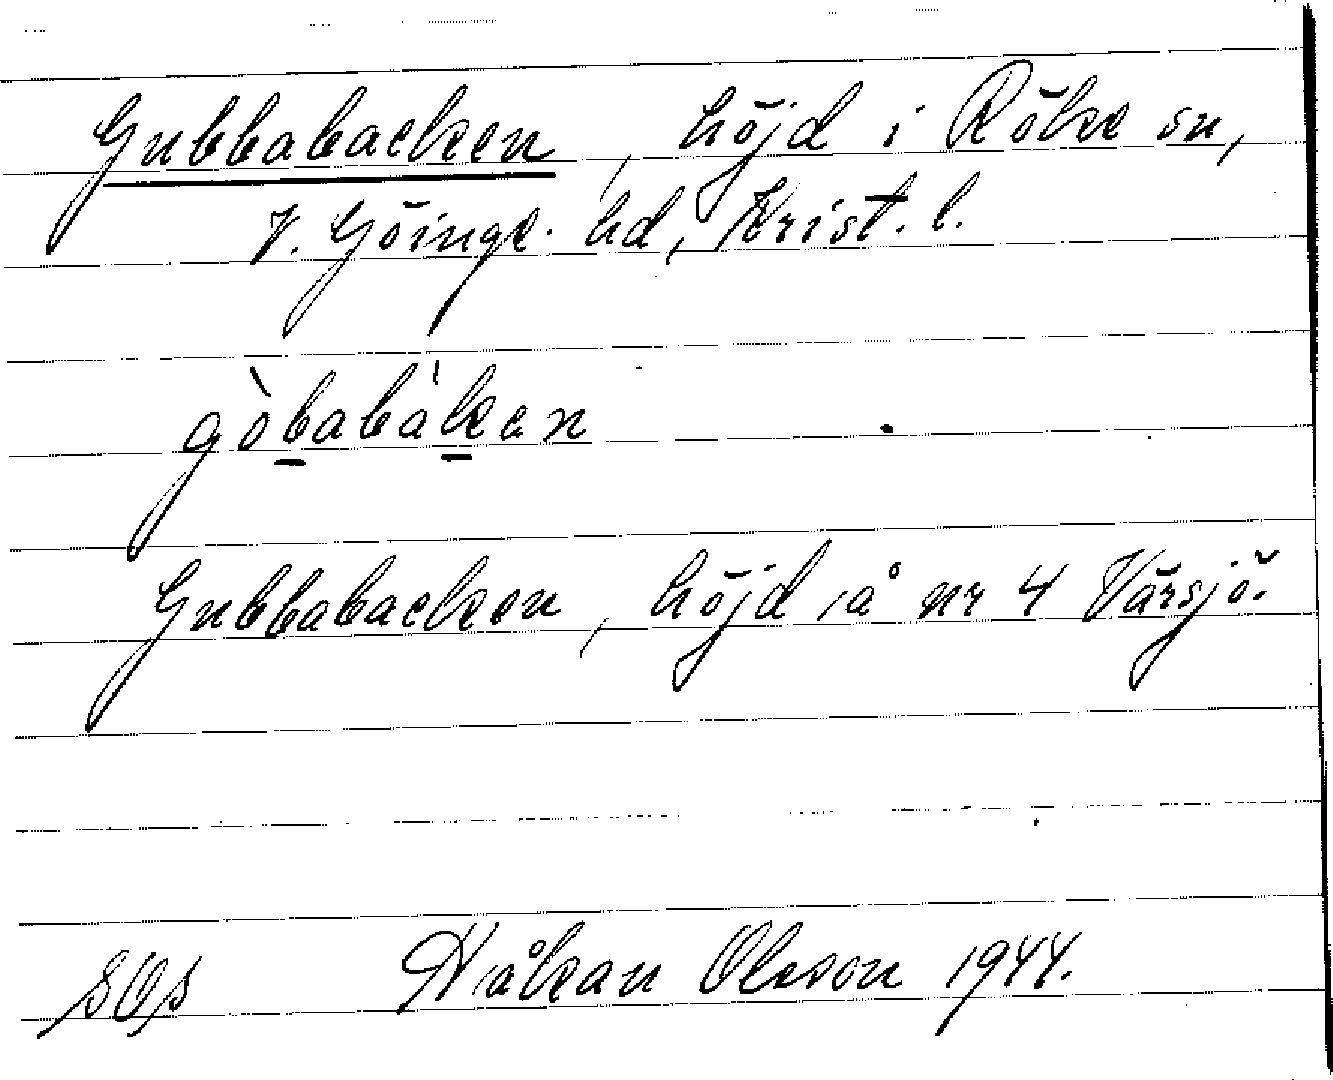 Gubbabacken, höjd i Röke sn,
V. Göinge hd, Krist. l.
gòbabàkan
Gubbabacken, höjd å nr 4 Värsjö.
SOS Håkan Olsson 1944.